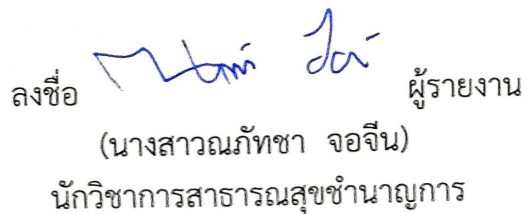 ลงชื่อ ผู้รายงาน
(นางสาวณภัทชา จอจีน)
นักวิชาการสาธารณสุขชำนาญการ